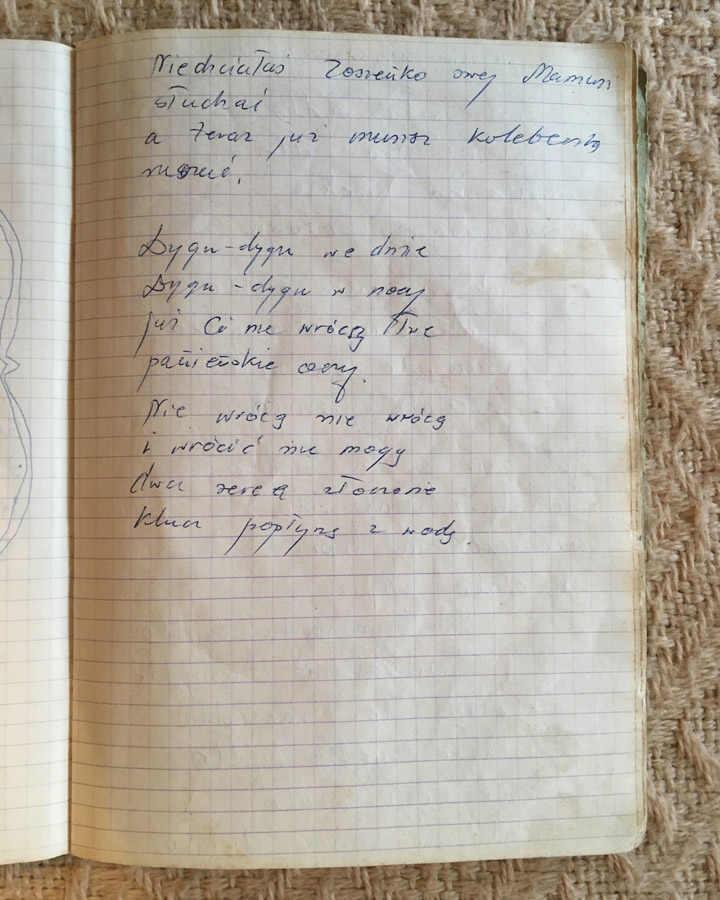 Niechciałaś Zosieńko swej Mamusi
słuchać
a teraz już musisz kolebeczką
ruszać.
Dygu-dygu we dnie
Dygu-dygu w nocy
już Ci nie wrócą Twe
panieńskie oczy.
Nie wrócą nie wrócą
i wrócić nie mogą
dwa serca złocone
klucz popłyną z wodą.